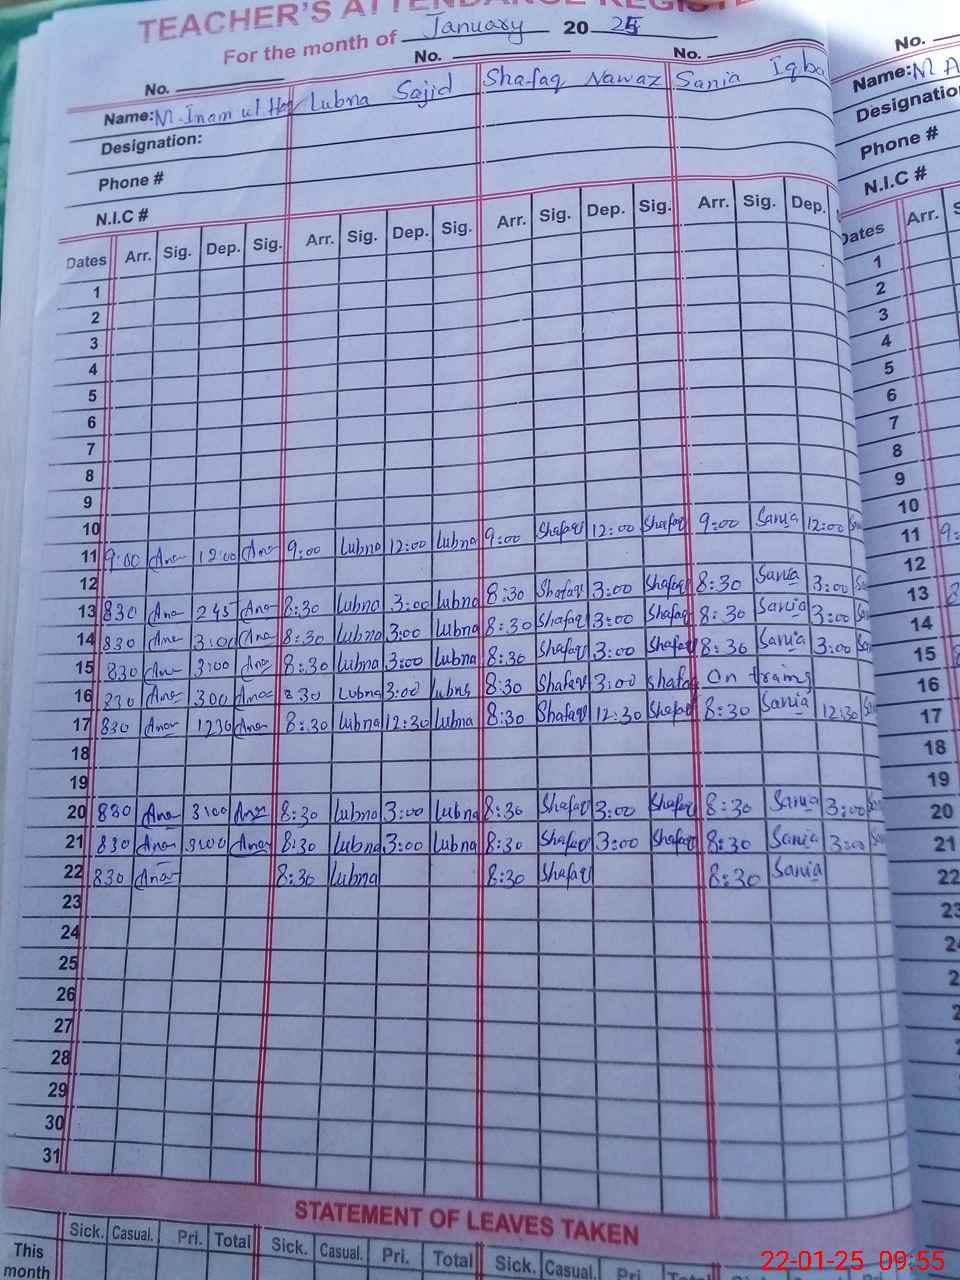 TEACHER'S ATTENDANCE REGISTE
For the month of January 20 25
No. No. No.
Name: M. Inam ul Haq Lubna Sajid Shafaq Nawaz Sania Iqba
Designation:
Phone #
N.I.C #
Dates Arr. Sig. Dep. Sig. Arr. Sig. Dep. Sig. Arr. Sig. Dep. Sig. Arr. Sig. Dep.
1
2
3
4
5
6
7
8
9
10
11 9:00 12:00 9:00 Lubna 12:00 Lubna 9:00 Shafaq 12:00 Shafaq 9:00 Sania 12:00
12
13 830 245 8:30 Lubna 3:00 Lubna 8:30 Shafaq 3:00 Shafaq 8:30 Sania 3:00
14 830 3:00 8:30 Lubna 3:00 Lubna 8:30 Shafaq 3:00 Shafaq 8:30 Sania 3:00
15 830 3:00 8:30 Lubna 3:00 Lubna 8:30 Shafaq 3:00 Shafaq 8:30 Sania 3:00
16 830 300 830 Lubna 3:00 Lubna 8:30 Shafaq 3:00 Shafaq On traing
17 830 1230 8:30 Lubna 12:30 Lubna 8:30 Shafaq 12:30 Shafaq 8:30 Sania 12:30
18
19
20 830 3:00 8:30 Lubna 3:00 Lubna 8:30 Shafaq 3:00 Shafaq 8:30 Sania 3:00
21 830 3:00 8:30 Lubna 3:00 Lubna 8:30 Shafaq 3:00 Shafaq 8:30 Sania 3:00
22 830 8:30 Lubna 8:30 Shafaq 8:30 Sania
23
24
25
26
27
28
29
30
31
STATEMENT OF LEAVES TAKEN
Sick. Casual. Pri. Total Sick. Casual. Pri. Total Sick. Casual. Pri. Total
This
month
No.
Name: M A
Designatio
Phone #
N.I.C #
Dates Arr.
1
2
3
4
5
6
7
8
9
10
11 9:
12
13
14
15
16
17
18
19
20
21
22
23
22-01-25 09:55